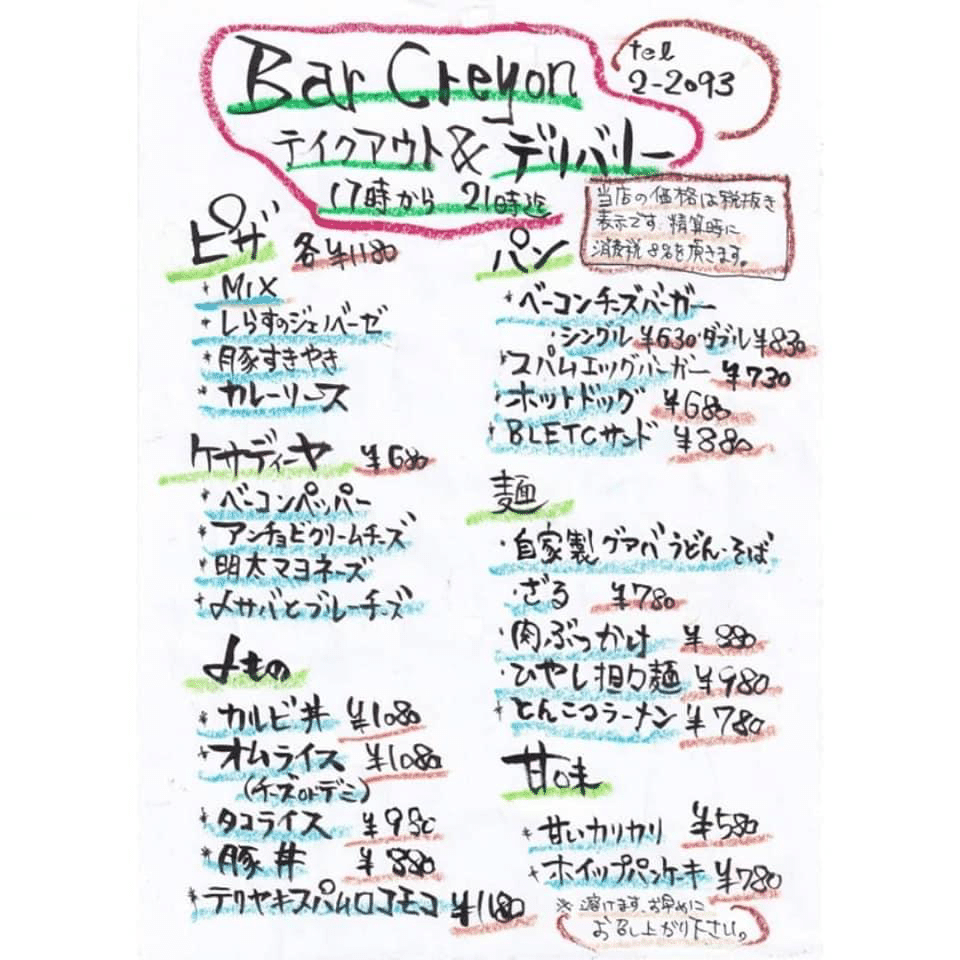 Bar Creyon
テイクアウト & デリバリー
17時から 21時迄
tel
2-2093
当店の価格は税抜き
表示です。精算時に
消費税8%を頂きます。
ピザ 各¥1180
* MIX
* しらすのジェノベーゼ
* 豚すきやき
* カレーソース
ケサディーヤ ¥680
* ベーコンペッパー
* アンチョビクリームチーズ
* 明太マヨネーズ
* 〆サバとブルーチーズ
〆もの
* カルビ丼 ¥1080
* オムライス ¥1080
(チーズorデミ)
* タコライス ¥980
* 豚丼 ¥880
* テリヤキスパムロコモコ ¥1180
パン
* ベーコンチーズバーガー
・シングル ¥630・ダブル ¥830
* スパムエッグバーガー ¥730
* ホットドッグ ¥680
* BLETCサンド ¥880
麺
・自家製グァバうどん・そば
・ざる ¥780
・肉ぶっかけ ¥880
・ひやし担々麺 ¥980
* とんこつラーメン ¥780
甘味
* 甘いカリカリ ¥580
* ホイップパンケーキ ¥780
※溶けます、お早めに
お召し上がり下さい。